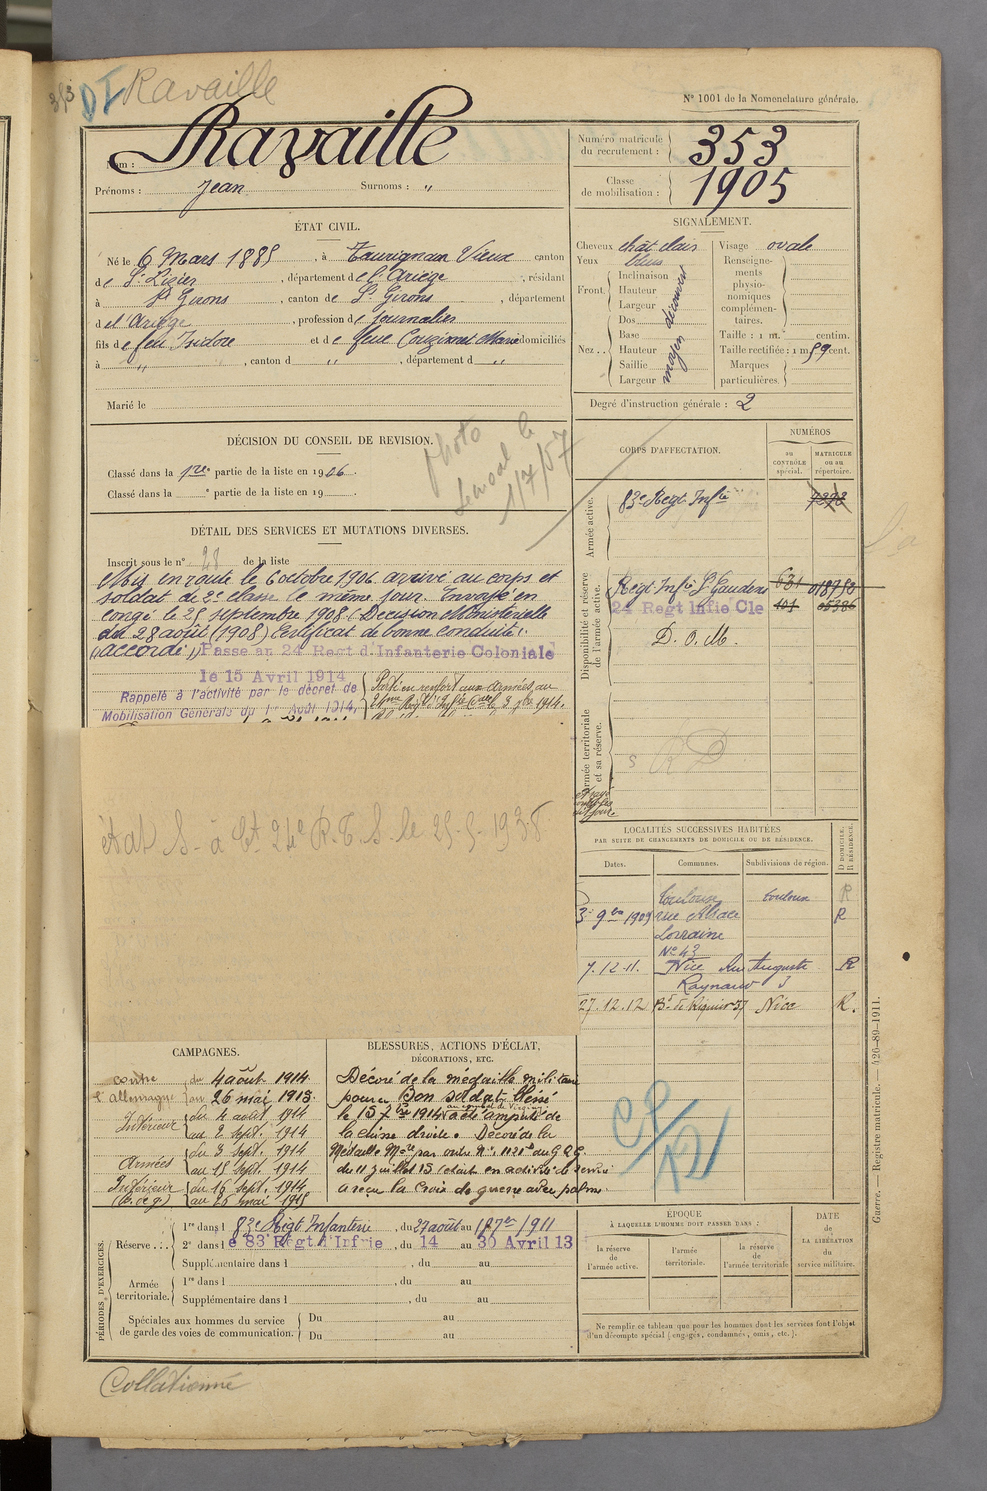 353 DI Ravaille
N° 1001 de la Nomenclature générale.
Nom : Ravaille
Prénoms : Jean Surnoms : "
Numéro matricule du recrutement : 353
Classe de mobilisation : 1905
ÉTAT CIVIL.
Né le 6 Mars 1885, à Taurignan Vieux canton
de St Lizier, département de l'Ariège, résidant
à St Girons, canton de St Girons, département
d el' Ariège, profession de journalier
fils de feu Isidore et de feue Couzinet Marie domiciliés
à ", canton d ", département d "
Marié le
SIGNALEMENT.
Cheveux chât clair
Yeux bleus
Front. Inclinaison
Hauteur
Largeur
découvert
Nez .. Dos
Base
Hauteur
Saillie
Largeur
moyen
Visage ovale
Renseigne-
ments
physio-
nomiques
complémen-
taires.
Taille : 1 m. centim.
Taille rectifiée : 1 m 59 cent.
Marques
particulières.
Degré d'instruction générale : 2
DÉCISION DU CONSEIL DE REVISION.
Classé dans la 1re partie de la liste en 1906.
Classé dans la ° partie de la liste en 19
photo
le
1/7/57
DÉTAIL DES SERVICES ET MUTATIONS DIVERSES.
Inscrit sous le n° 28 de la liste
Mis en route le 6 octobre 1906 arrivé au corps et
soldat de 2e classe le même jour. Envoyé en
congé le 25 septembre 1908 (Décision Ministérielle
du 28 août 1908) Certificat de bonne conduite
"accordé" Passé au 24 Regt d'Infanterie Coloniale
le 15 Avril 1914
Rappelé à l'activité par le décret de
Mobilisation Générale du 1er Août 1914,
Parti en renfort aux Armées au
24me Regt d'Infie Cale le 3 7bre 1914.
état S. à Ct 24e R.T.S. le 25-5-1938
CORPS D'AFFECTATION.
NUMÉROS
au CONTRÔLE spécial.
MATRICULE ou au répertoire.
Armée active.
83e Regt Infie 7292
Disponibilité et réserve de l'armée active.
Regt Infie St Gaudens 631 018752
24 Regt Infie Cle 101 05386
D. O. M.
Armée territoriale et sa réserve.
S RD
LOCALITÉS SUCCESSIVES HABITÉES
PAR SUITE DE CHANGEMENTS DE DOMICILE OU DE RÉSIDENCE.
Dates. Communes. Subdivisions de région. D DOMICILE. R RÉSIDENCE.
Toulouse Toulouse R
3 9bre 1909 rue Alsace R
Lorraine
N° 43
7.12.11. Nice Rue Auguste R
Raynaud 5
27.12.12 Bd de Riquier 37 Nice R.
CP
RD
CAMPAGNES.
contre l'allemagne du 4 août 1914
au 26 mai 1915.
Intérieur du 4 août 1914
au 2 Sept. 1914
Armées du 3 Sept. 1914
au 15 Sept. 1914
Intérieur (b. de g.) du 16 Sept. 1914
au 26 mai 1915
BLESSURES, ACTIONS D'ÉCLAT,
DÉCORATIONS, ETC.
Décoré de la médaille militaire
pour Bon soldat, blessé
le 15 7bre 1914 a été amputé de
la cuisse droite. Décoré de la
Médaille Mre par ordre N° 1121 du G.Q.G.
du 11 juillet 15 (étant en activité de service
a reçu la Croix de guerre avec palme
PÉRIODES D'EXERCICES.
Réserve ... 1re dans l 83e Régt Infanterie, du 27 août au 17 7bre 1911
2e dans l e 83 Régt d'Infrie, du 14 au 30 Avril 13
Supplémentaire dans l , du au
Armée territoriale. 1re dans l , du au
Supplémentaire dans l , du au
Spéciales aux hommes du service de garde des voies de communication. Du au
Du au
ÉPOQUE
À LAQUELLE L'HOMME DOIT PASSER DANS :
la réserve de l'armée active.
l'armée territoriale.
la réserve de l'armée territoriale
DATE de LA LIBÉRATION du service militaire.
Ne remplir ce tableau que pour les hommes dont les services font l'objet
d'un décompte spécial (engagés, condamnés, omis, etc.).
Guerre. — Registre matricule. — 426-89-1911.
Collationné